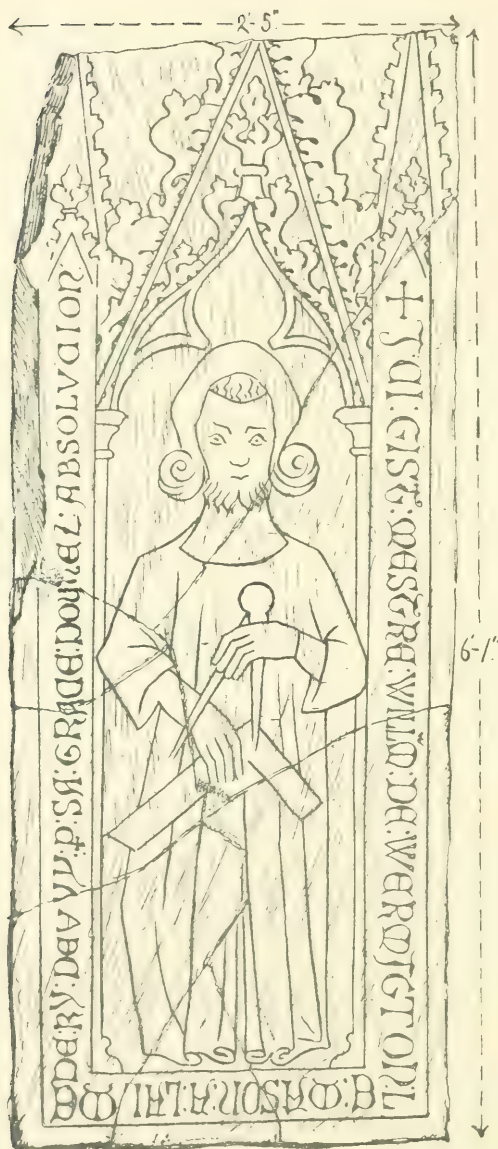 2'-5"
6'-1"
+ ICI : GIST : MESTRE : WILLM̄ : DE : WERMIGTON L
E : MASON : A : LALME
DE KY : DEV VV : P : SA : GRACE : DOYNEZ : ABSOLVCION